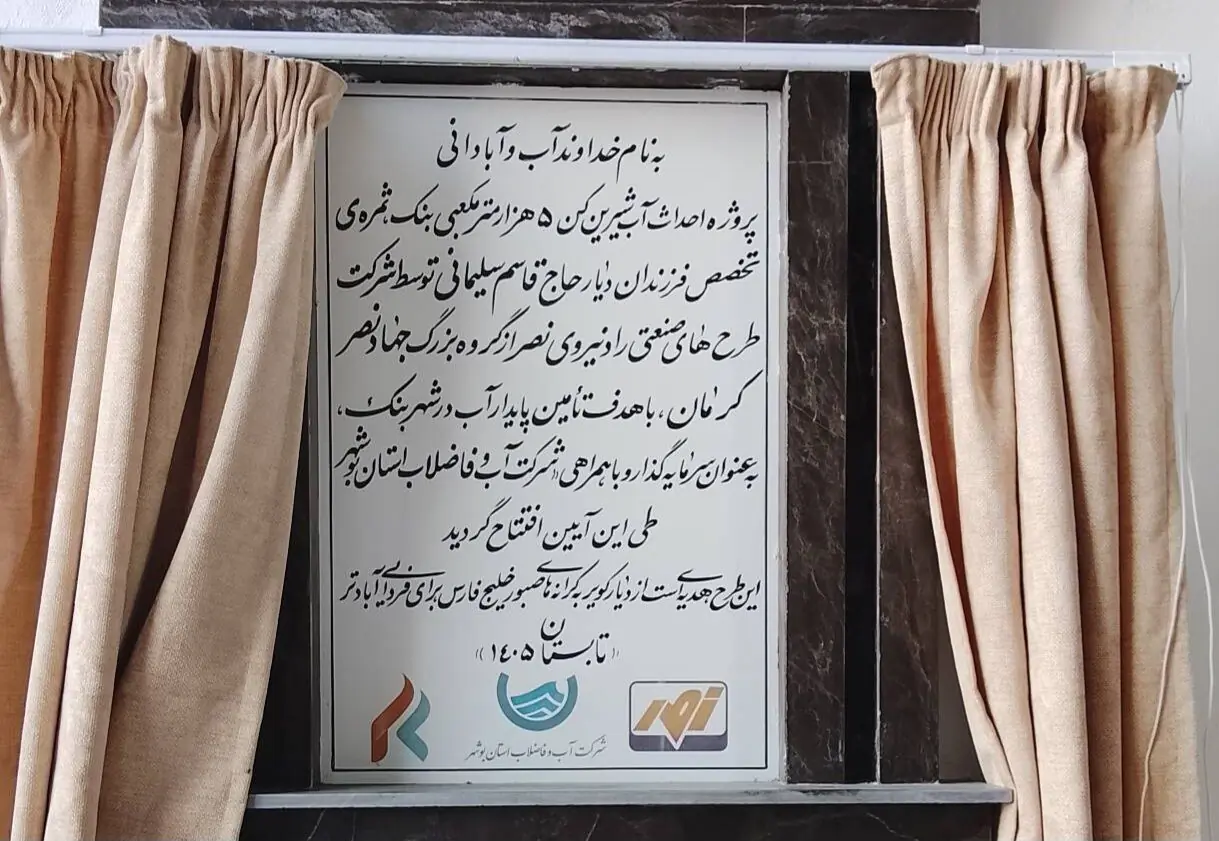 به نام خداوند آب و آبادانی
پروژه احداث آب شیرین کن ۵ هزار متر مکعبی بنک ثمره‌ی
تخصص فرزندان دیار حاج قاسم سلیمانی توسط شرکت
طرح های صنعتی راد نیروی نصر از گروه بزرگ جهاد نصر
کرمان ، با هدف تأمین پایدار آب در شهر بنک ،
به عنوان سرمایه گذار و با همراهی «شرکت آب و فاضلاب استان بوشهر
طی این آیین افتتاح گردید
این طرح هدیه‌ای است از دیار کویر به کرانه های صبور خلیج فارس برای فردایی آبادتر
«تابستان ۱۴۰۵»
شرکت آب و فاضلاب استان بوشهر